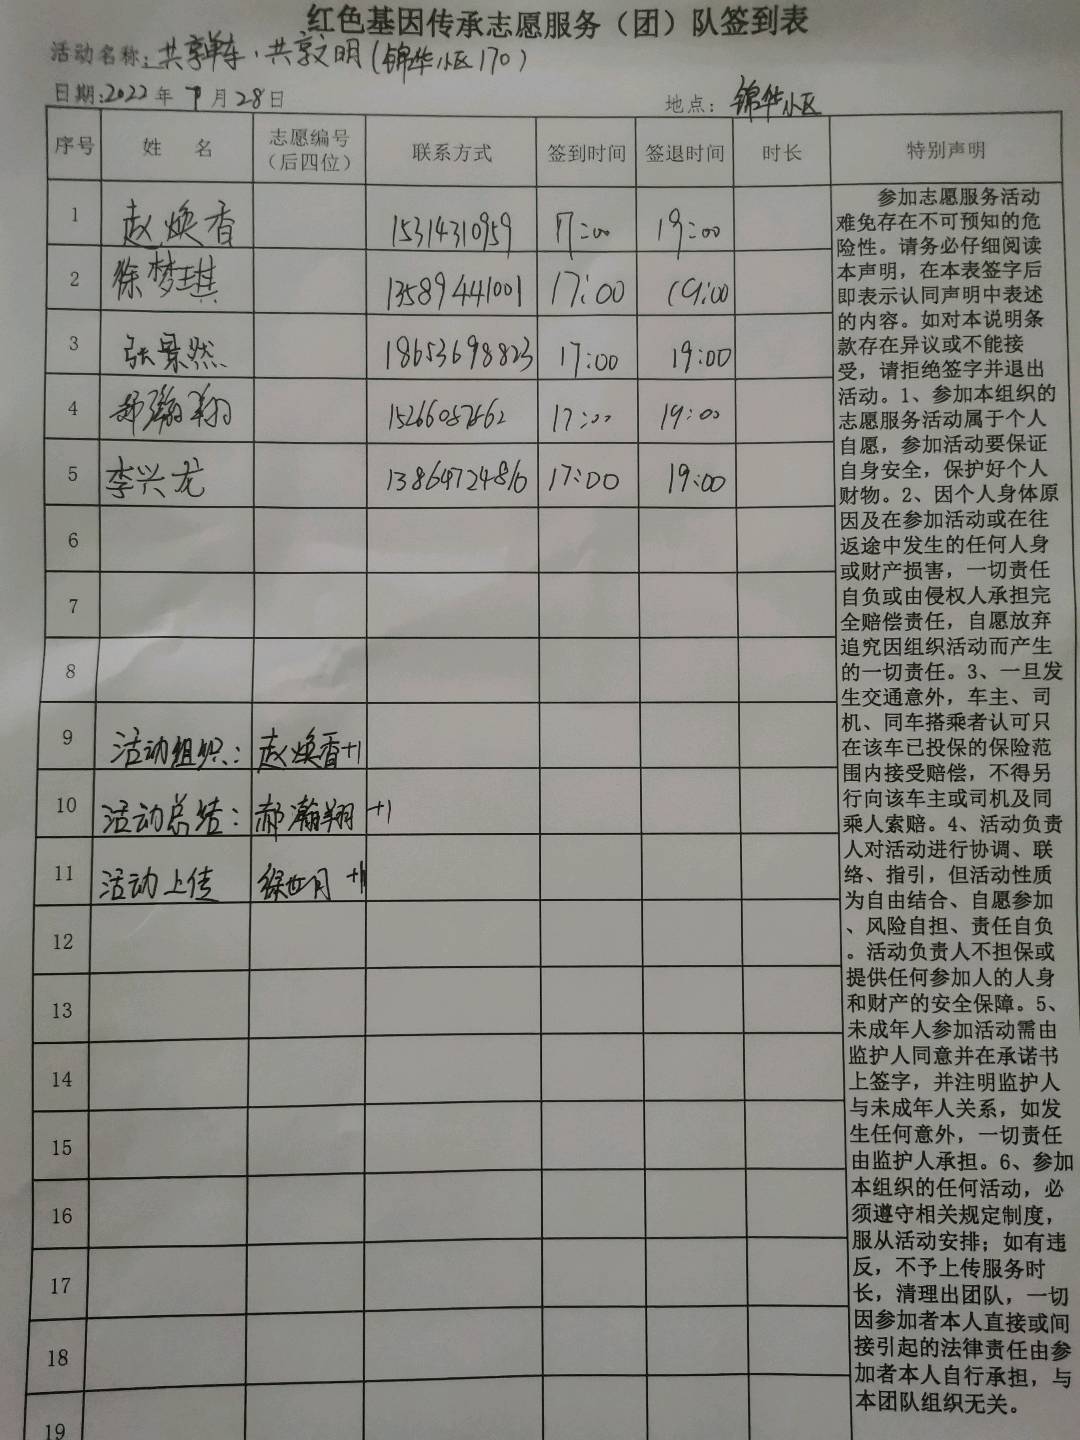 红色基因传承志愿服务（团）队签到表
活动名称：共享单车·共享文明（锦华小区170）
日期：2022年7月28日 地点：锦华小区
序号 姓 名 志愿编号（后四位） 联系方式 签到时间 签退时间 时长 特别声明
1 赵焕香 15314310959 17:00 19:00
2 徐梦琪 13589441001 17:00 19:00
3 张景然 18653698823 17:00 19:00
4 郝瀚翔 17:00 19:00
5 李兴龙 13864724816 17:00 19:00
6
7
8
9 活动组织：赵焕香+1
10 活动总结：郝瀚翔 +1
11 活动上传 +1
12
13
14
15
16
17
18
19
参加志愿服务活动
难免存在不可预知的危
险性。请务必仔细阅读
本声明，在本表签字后
即表示认同声明中表述
的内容。如对本说明条
款存在异议或不能接
受，请拒绝签字并退出
活动。1、参加本组织的
志愿服务活动属于个人
自愿，参加活动要保证
自身安全，保护好个人
财物。2、因个人身体原
因及在参加活动或在往
返途中发生的任何人身
或财产损害，一切责任
自负或由侵权人承担完
全赔偿责任，自愿放弃
追究因组织活动而产生
的一切责任。3、一旦发
生交通意外，车主、司
机、同车搭乘者认可只
在该车已投保的保险范
围内接受赔偿，不得另
行向该车主或司机及同
乘人索赔。4、活动负责
人对活动进行协调、联
络、指引，但活动性质
为自由结合、自愿参加
、风险自担、责任自负
。活动负责人不担保或
提供任何参加人的人身
和财产的安全保障。5、
未成年人参加活动需由
监护人同意并在承诺书
上签字，并注明监护人
与未成年人关系，如发
生任何意外，一切责任
由监护人承担。6、参加
本组织的任何活动，必
须遵守相关规定制度，
服从活动安排；如有违
反，不予上传服务时
长，清理出团队，一切
因参加者本人直接或间
接引起的法律责任由参
加者本人自行承担，与
本团队组织无关。